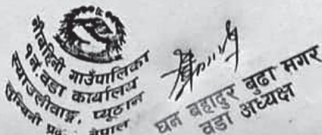 गौबहिनी गाउँपालिका
१ नं. वडा कार्यालय
स्याउलीबाङ्ग, प्यूठान
लुम्बिनी प्र नेपाल
धन बहादुर बुढा मगर
वडा अध्यक्ष